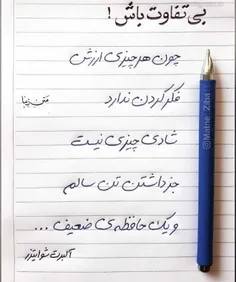 بی تفاوت باش !
چون هر چیزی ارزش
فکر کردن ندارد
متن زیبا
شادی چیزی نیست
جز داشتن تن سالم
و یک حافظه‌ی ضعیف ...
آلبرت شوایتزر
@Matne_Ziba